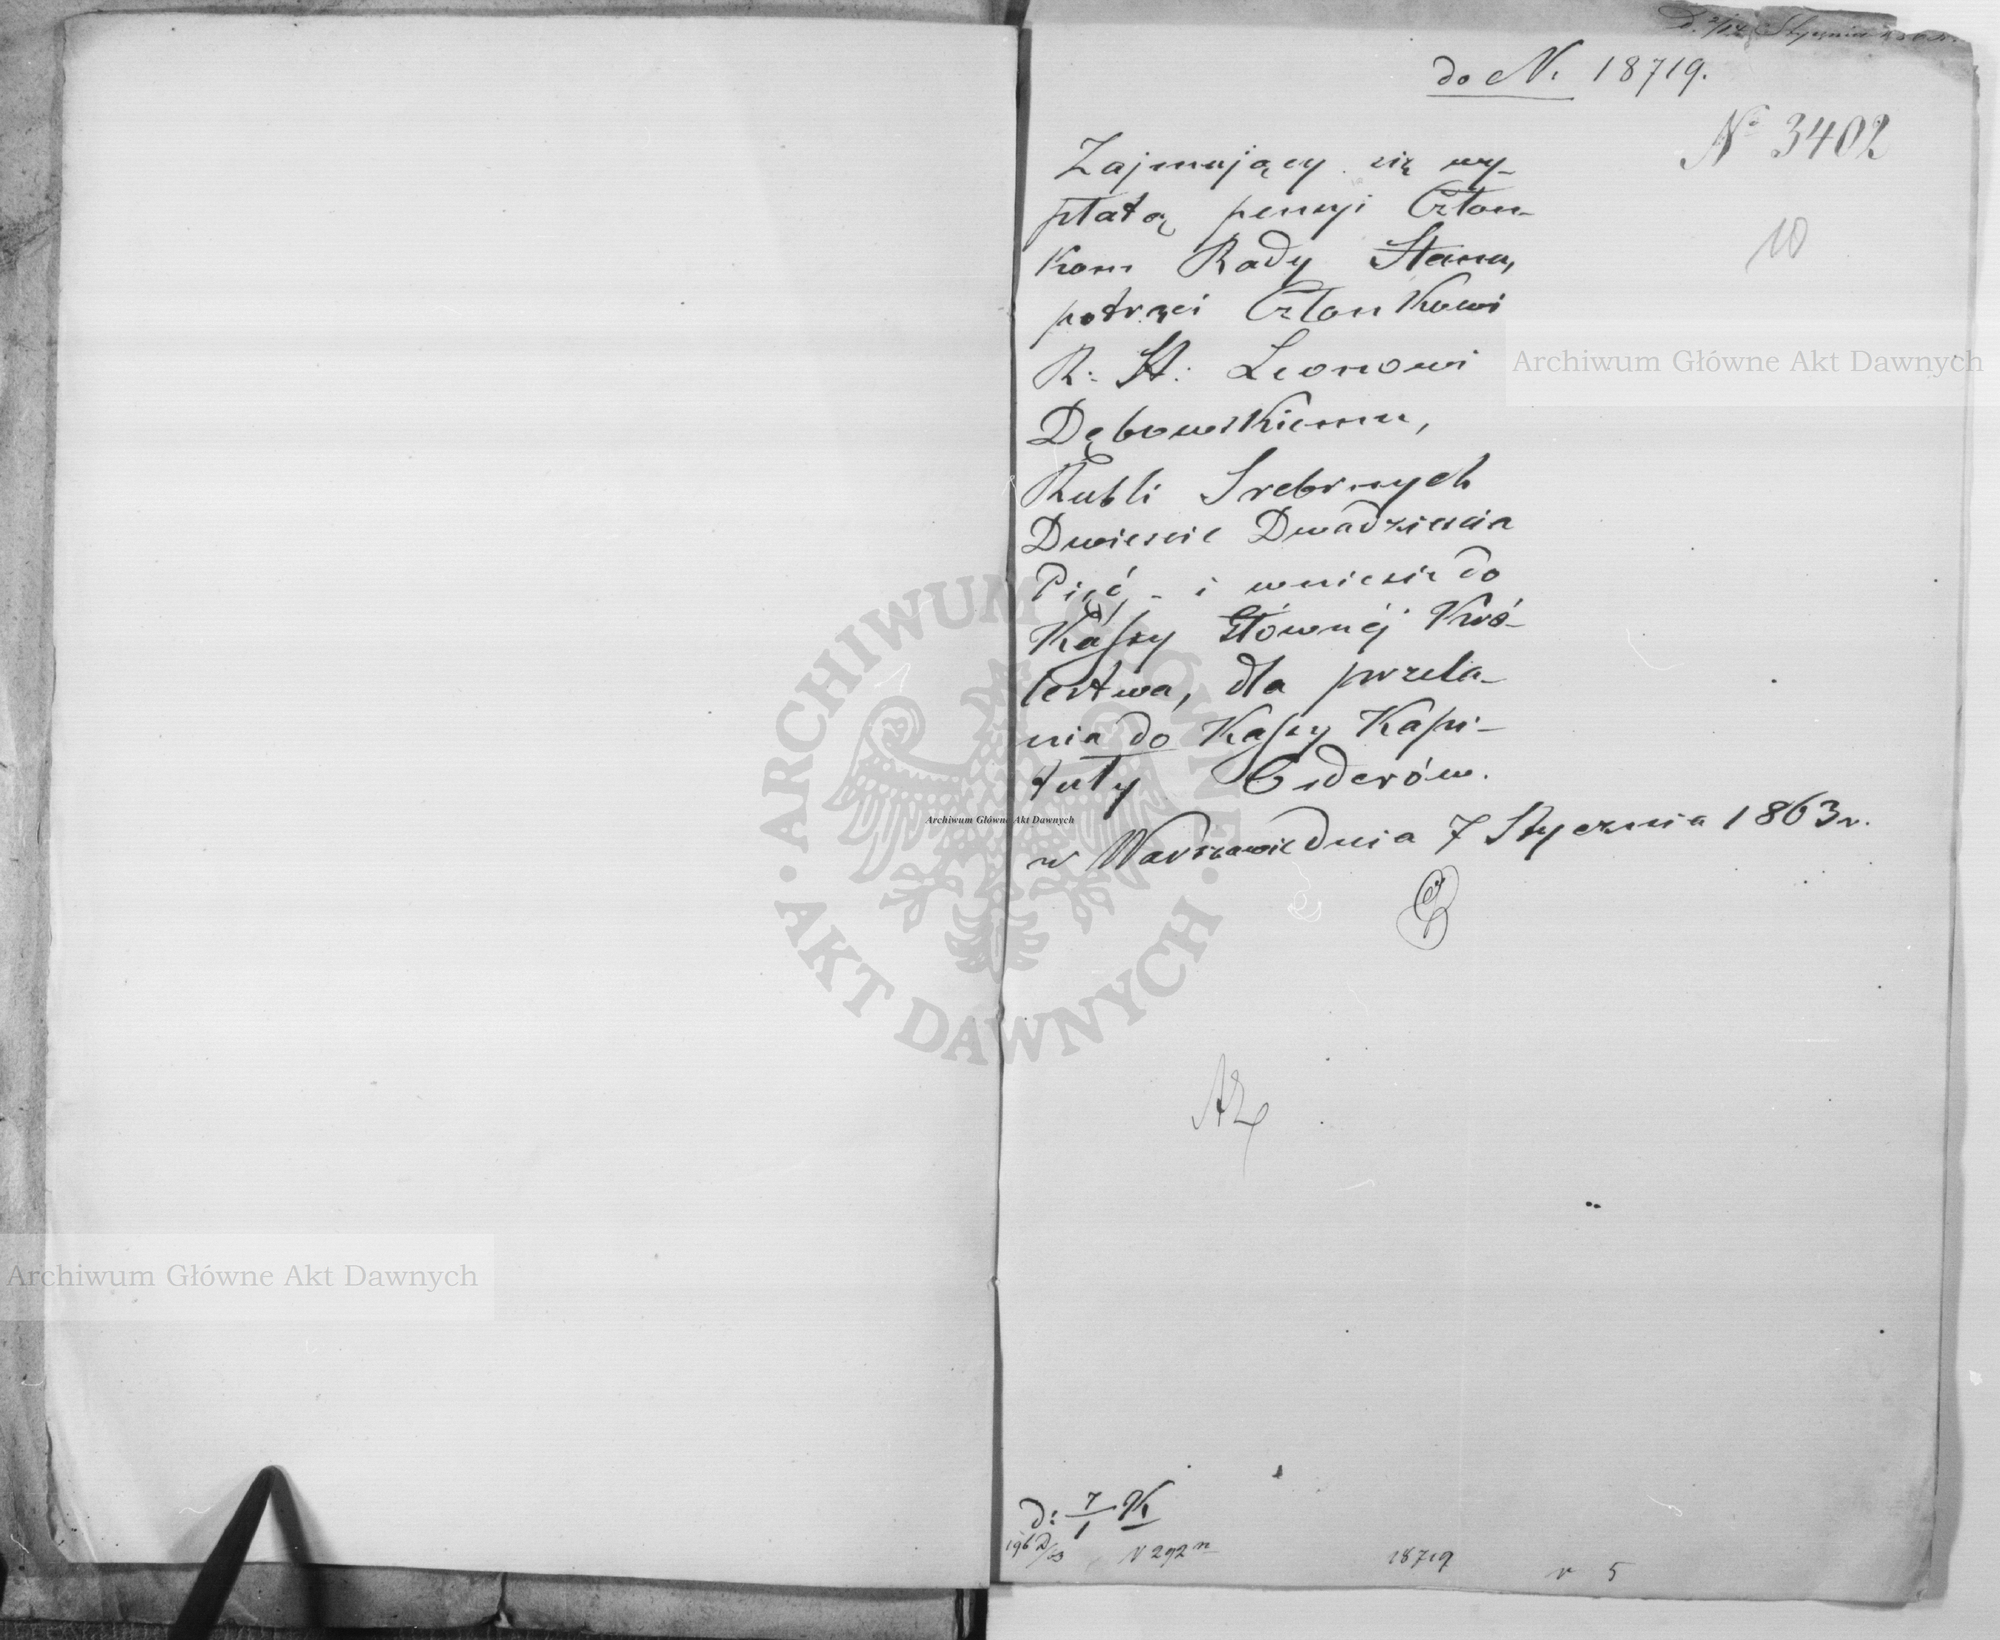 D. 2/14 Stycznia 1863 r.
do N. 18719.
Nº 3402
10
Zajmujący się wy-
płatą pensyi Człon-
kom Rady Stanu,
potrąci Członkowi
R: St: Leonowi
Dębowskiemu,
Rubli Srebrnych
Dwieście Dwadzieścia
Pięć, - i wniesie do
Kassy Głównéj Kró-
lestwa, dla przela-
nia do Kassy Kapi-
tuły Orderów.
w Warszawie dnia 7 Stycznia 1863 r.
d: 7/1
N 292
18719
5
Archiwum Główne Akt Dawnych
Archiwum Główne Akt Dawnych
Archiwum Główne Akt Dawnych
ARCHIWUM GŁÓWNE AKT DAWNYCH